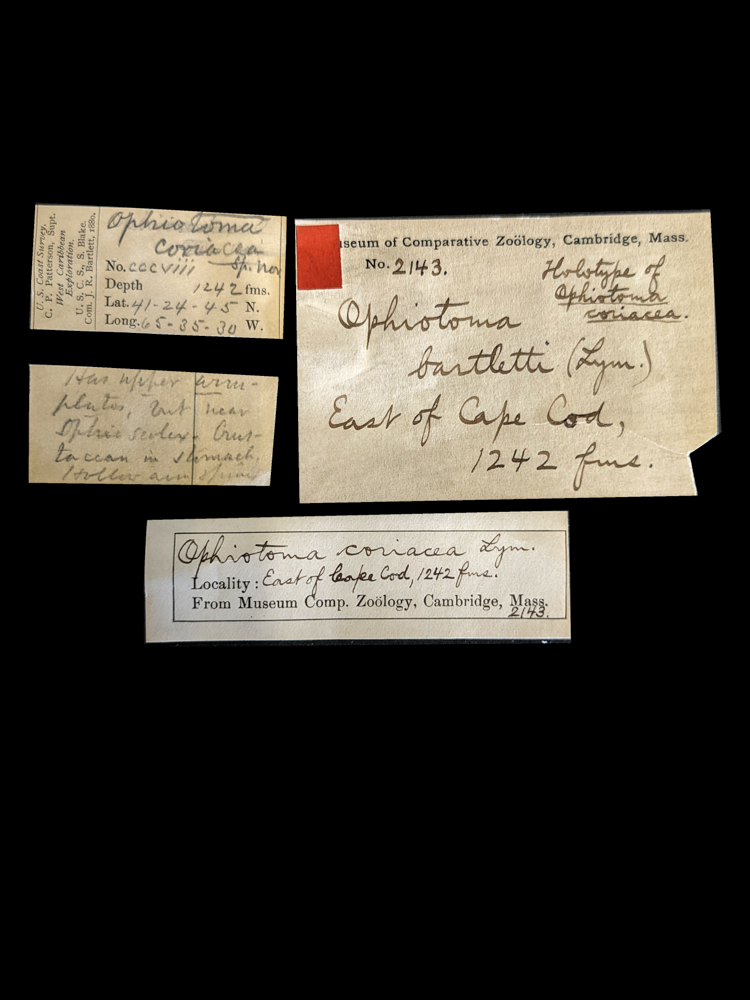 U. S. Coast Survey.
C. P. Patterson, Supt.
West Caribbean
Exploration.
U. S. C. S., S. Blake.
Com. J. R. Bartlett, 1880.
Ophiotoma
coriacea
No. cccviii Sp. nov
Depth 1242 fms.
Lat. 41-24-45 N.
Long. 65-35-30 W.
Has upper arm-
plates, but near
Ophioscolex. Crus-
tacean in stomach.
Hollow arm spines
useum of Comparative Zoölogy, Cambridge, Mass.
No. 2143.
Holotype of
Ophiotoma
coriacea.
Ophiotoma
bartletti (Lym.)
East of Cape Cod,
1242 fms.
Ophiotoma coriacea Lym.
Locality: East of Cape Cod, 1242 fms.
From Museum Comp. Zoölogy, Cambridge, Mass.
2143.